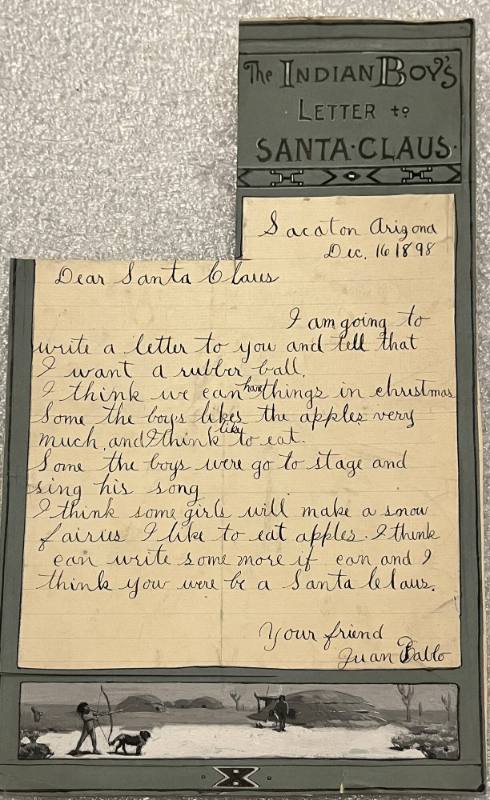 The INDIAN BOY'S
LETTER to
SANTA·CLAUS·
Sacaton Arizona
Dec. 16 1898
Dear Santa Claus
I am going to
write a letter to you and tell that
I want a rubber ball.
I think we can have things in christmas
Some the boys likes the apples very
much, and I think they like to eat.
Some the boys were go to stage and
sing his song
I think some girls will make a snow
fairies I like to eat apples. I think
can write some more if can and I
think you were be a Santa Claus.
Your friend
Juan Pablo